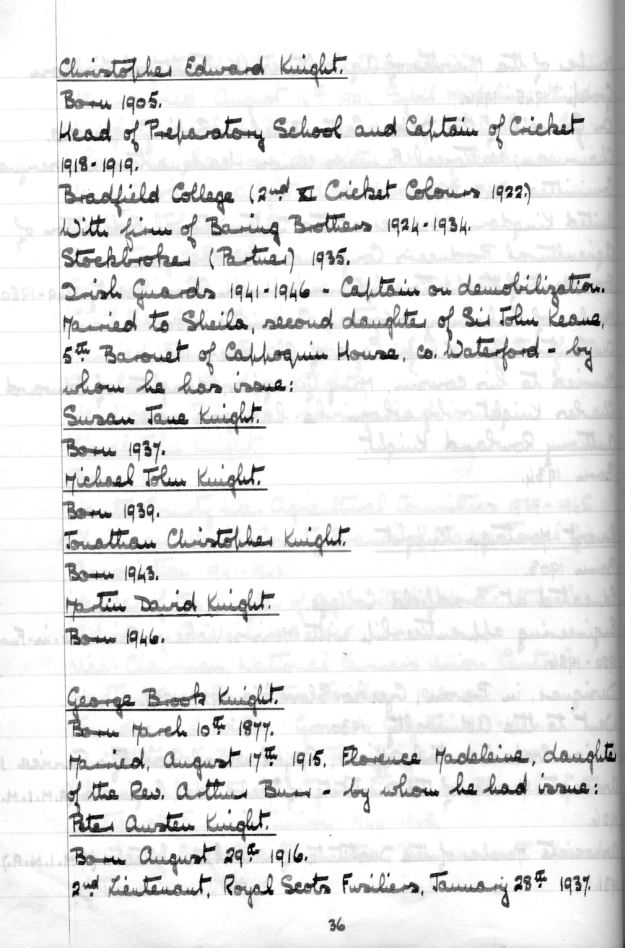 Christopher Edward Knight.
Born 1905.
Head of Preparatory School and Captain of Cricket
1918-1919.
Bradfield College (2nd XI Cricket Colours 1922)
With firm of Baring Brothers 1924-1934.
Stockbroker (Partner) 1935.
Irish Guards 1941-1946 - Captain on demobilization.
Married to Sheila, second daughter of Sir John Keane,
5th Baronet of Cappoquin House, Co. Waterford - by
whom he has issue:
Susan Jane Knight.
Born 1937.
Michael John Knight.
Born 1939.
Jonathan Christopher Knight.
Born 1943.
Martin David Knight.
Born 1946.
George Brook Knight.
Born March 10th 1877.
Married, August 17th 1915, Florence Madeleine, daughter
of the Rev. Arthur Burr - by whom he had issue:
Peter Austen Knight.
Born August 29th 1916.
2nd Lieutenant, Royal Scots Fusiliers, January 28th 1937.
36